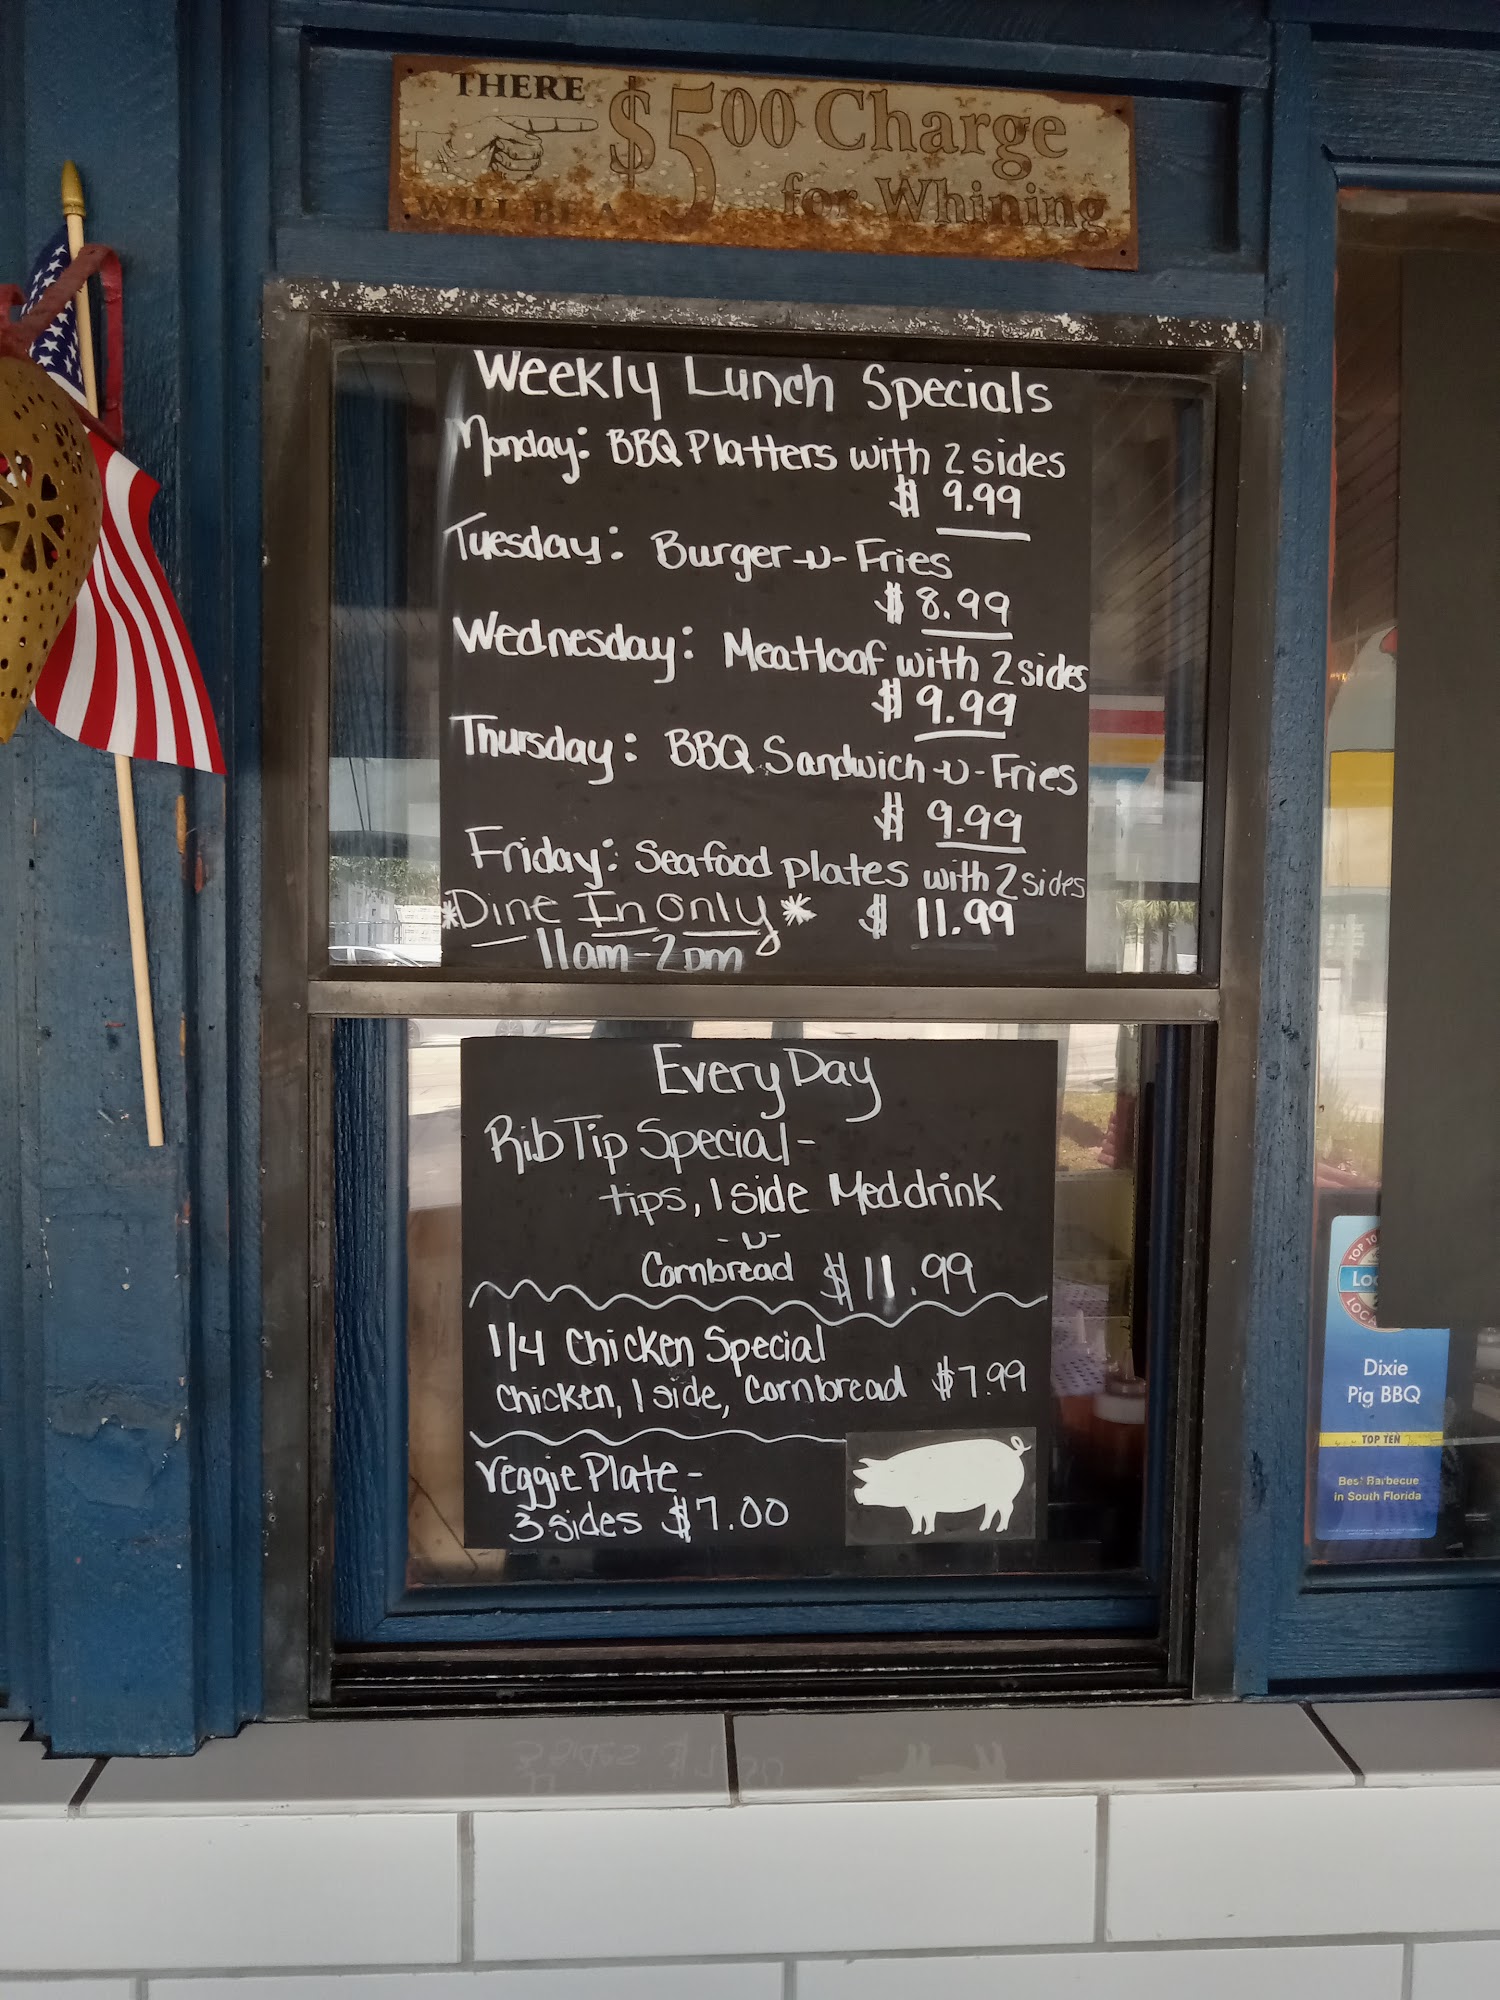 THERE
WILL BE A
$5.00 Charge
for Whining
Weekly Lunch Specials
Monday: BBQ Platters with 2 sides
$ 9.99
Tuesday: Burger-N-Fries
$ 8.99
Wednesday: Meatloaf with 2 sides
$ 9.99
Thursday: BBQ Sandwich-N-Fries
$ 9.99
Friday: Seafood plates with 2 sides
*Dine In Only* $ 11.99
11am-2pm
Every Day
Rib Tip Special-
tips, 1 side Med drink
-N-
Cornbread $11.99
1/4 Chicken Special
chicken, 1 side, Cornbread $7.99
Veggie Plate-
3 sides $7.00
TOP 10
Dixie
Pig BBQ
TOP TEN
Best Barbecue
in South Florida